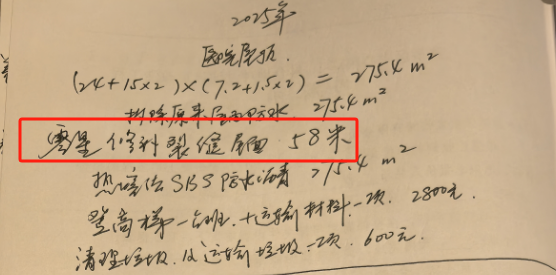 2025年
医院屋顶.
(24+15×2)×(7.2+1.5×2) = 275.4 m²
拆除原来屋面防水 275.4m²
零星修补裂缝屋面 58米
热熔法SBS防水沥青 275.4 m²
登高梯一台班.+运输材料.一项. 2800元
清理垃圾.及运输垃圾.一项. 600元.